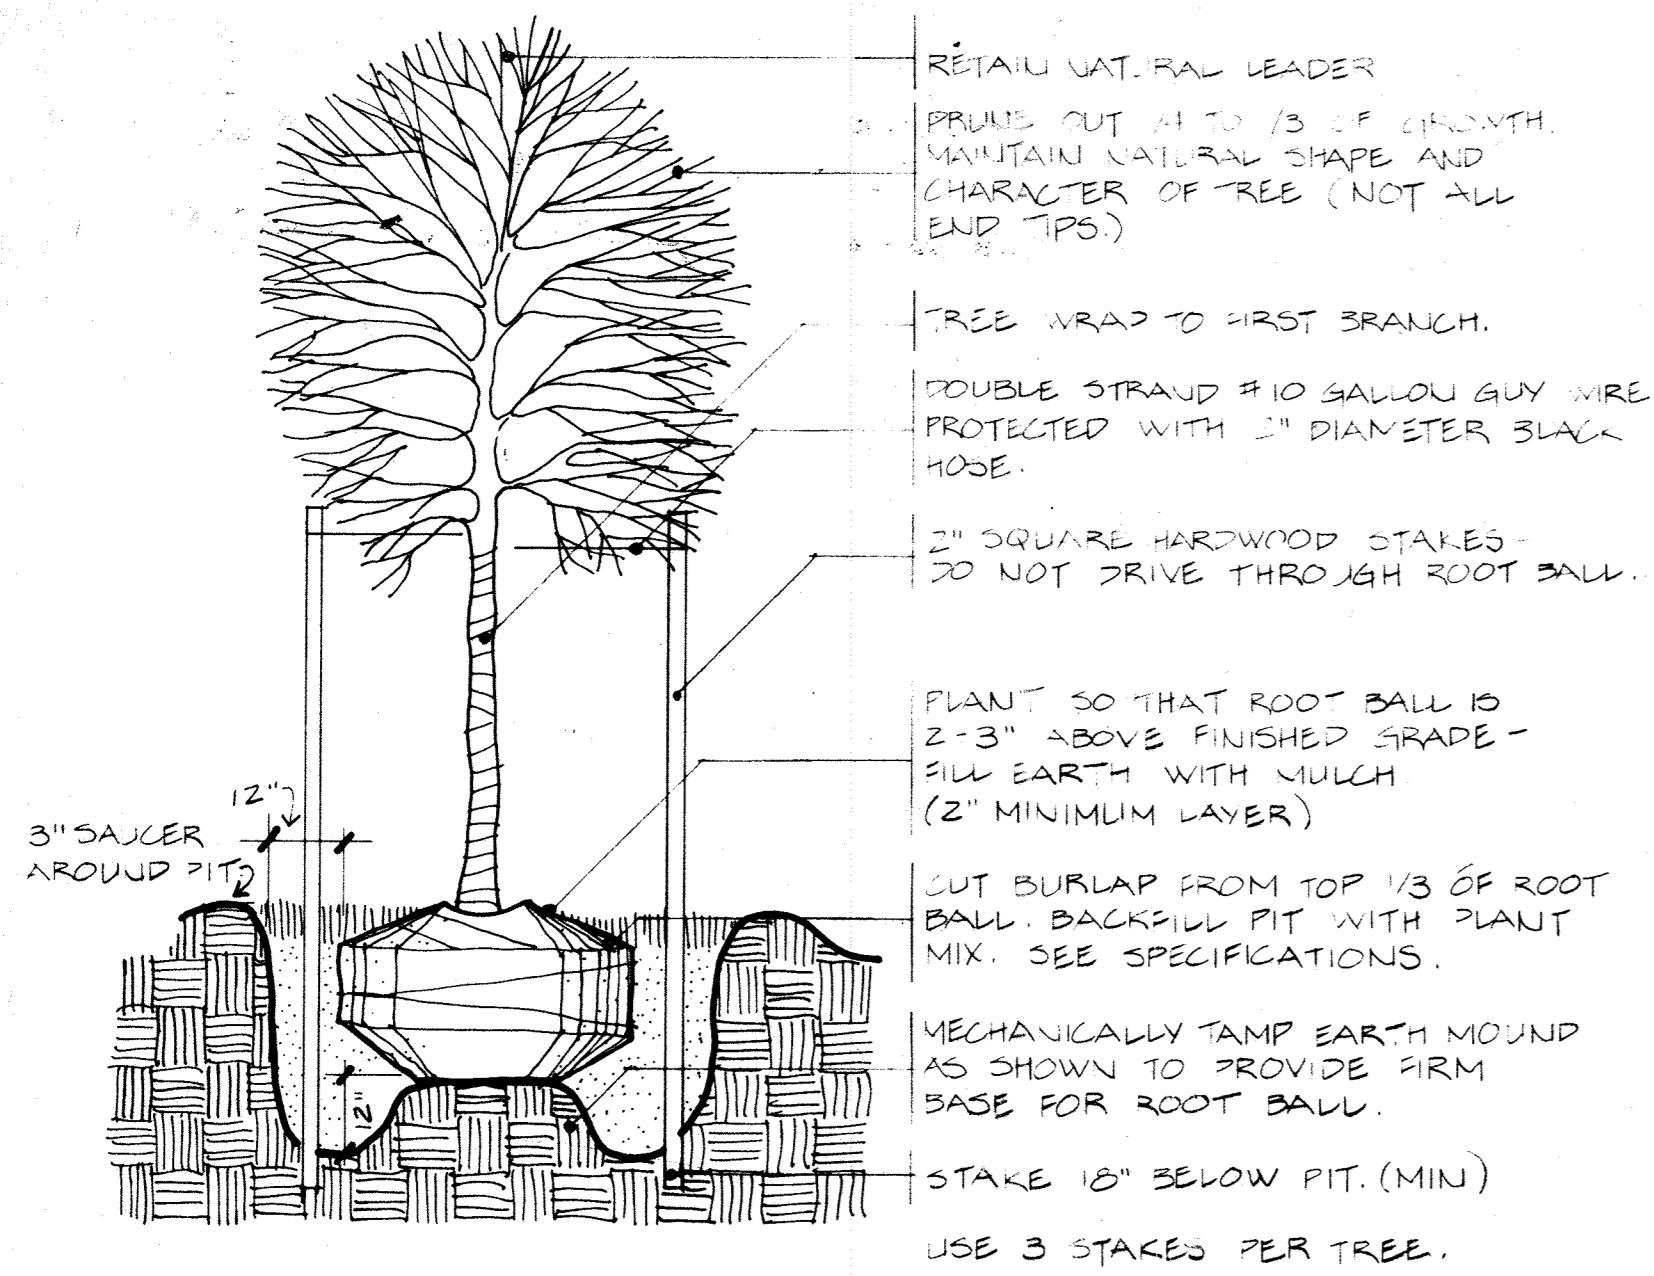 RETAIN NATURAL LEADER
PRUNE OUT 1/4 TO 1/3 OF GROWTH.
MAINTAIN NATURAL SHAPE AND
CHARACTER OF TREE (NOT ALL
END TIPS.)
TREE WRAP TO FIRST BRANCH.
DOUBLE STRAND #10 GALLON GUY WIRE
PROTECTED WITH 2" DIAMETER BLACK
HOSE.
2" SQUARE HARDWOOD STAKES -
DO NOT DRIVE THROUGH ROOT BALL.
PLANT SO THAT ROOT BALL IS
2-3" ABOVE FINISHED GRADE -
FILL EARTH WITH MULCH
(2" MINIMUM LAYER)
12"
3" SAUCER
AROUND PIT
CUT BURLAP FROM TOP 1/3 OF ROOT
BALL. BACKFILL PIT WITH PLANT
MIX. SEE SPECIFICATIONS.
MECHANICALLY TAMP EARTH MOUND
AS SHOWN TO PROVIDE FIRM
BASE FOR ROOT BALL.
12"
STAKE 18" BELOW PIT. (MIN)
USE 3 STAKES PER TREE.